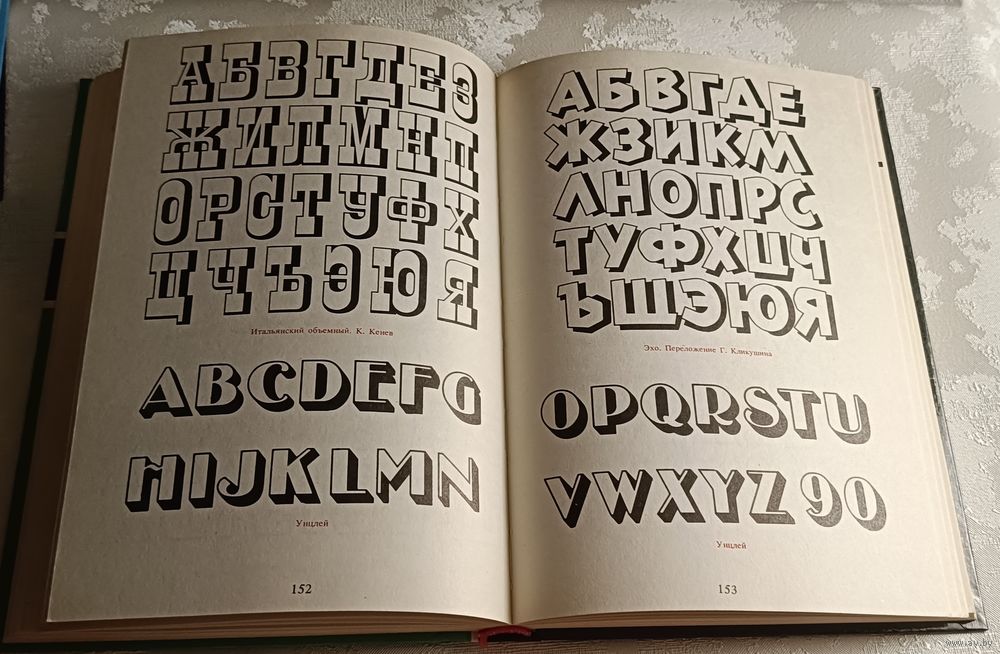 АБВГДЕЗ
ЖИЛМНП
ОРСТУФХ
ЦЧЪЭЮЯ
Итальянский объемный. К. Кенев
ABCDEFG
HIJKLMN
Унцлей
152
АБВГДЕ
ЖЗИКМ
ЛНОПРС
ТУФХЦЧ
ЪЩЭЮЯ
Эхо. Переложение Г. Кликушина
OPQRSTU
VWXYZ90
Унцлей
153
www.ay.by